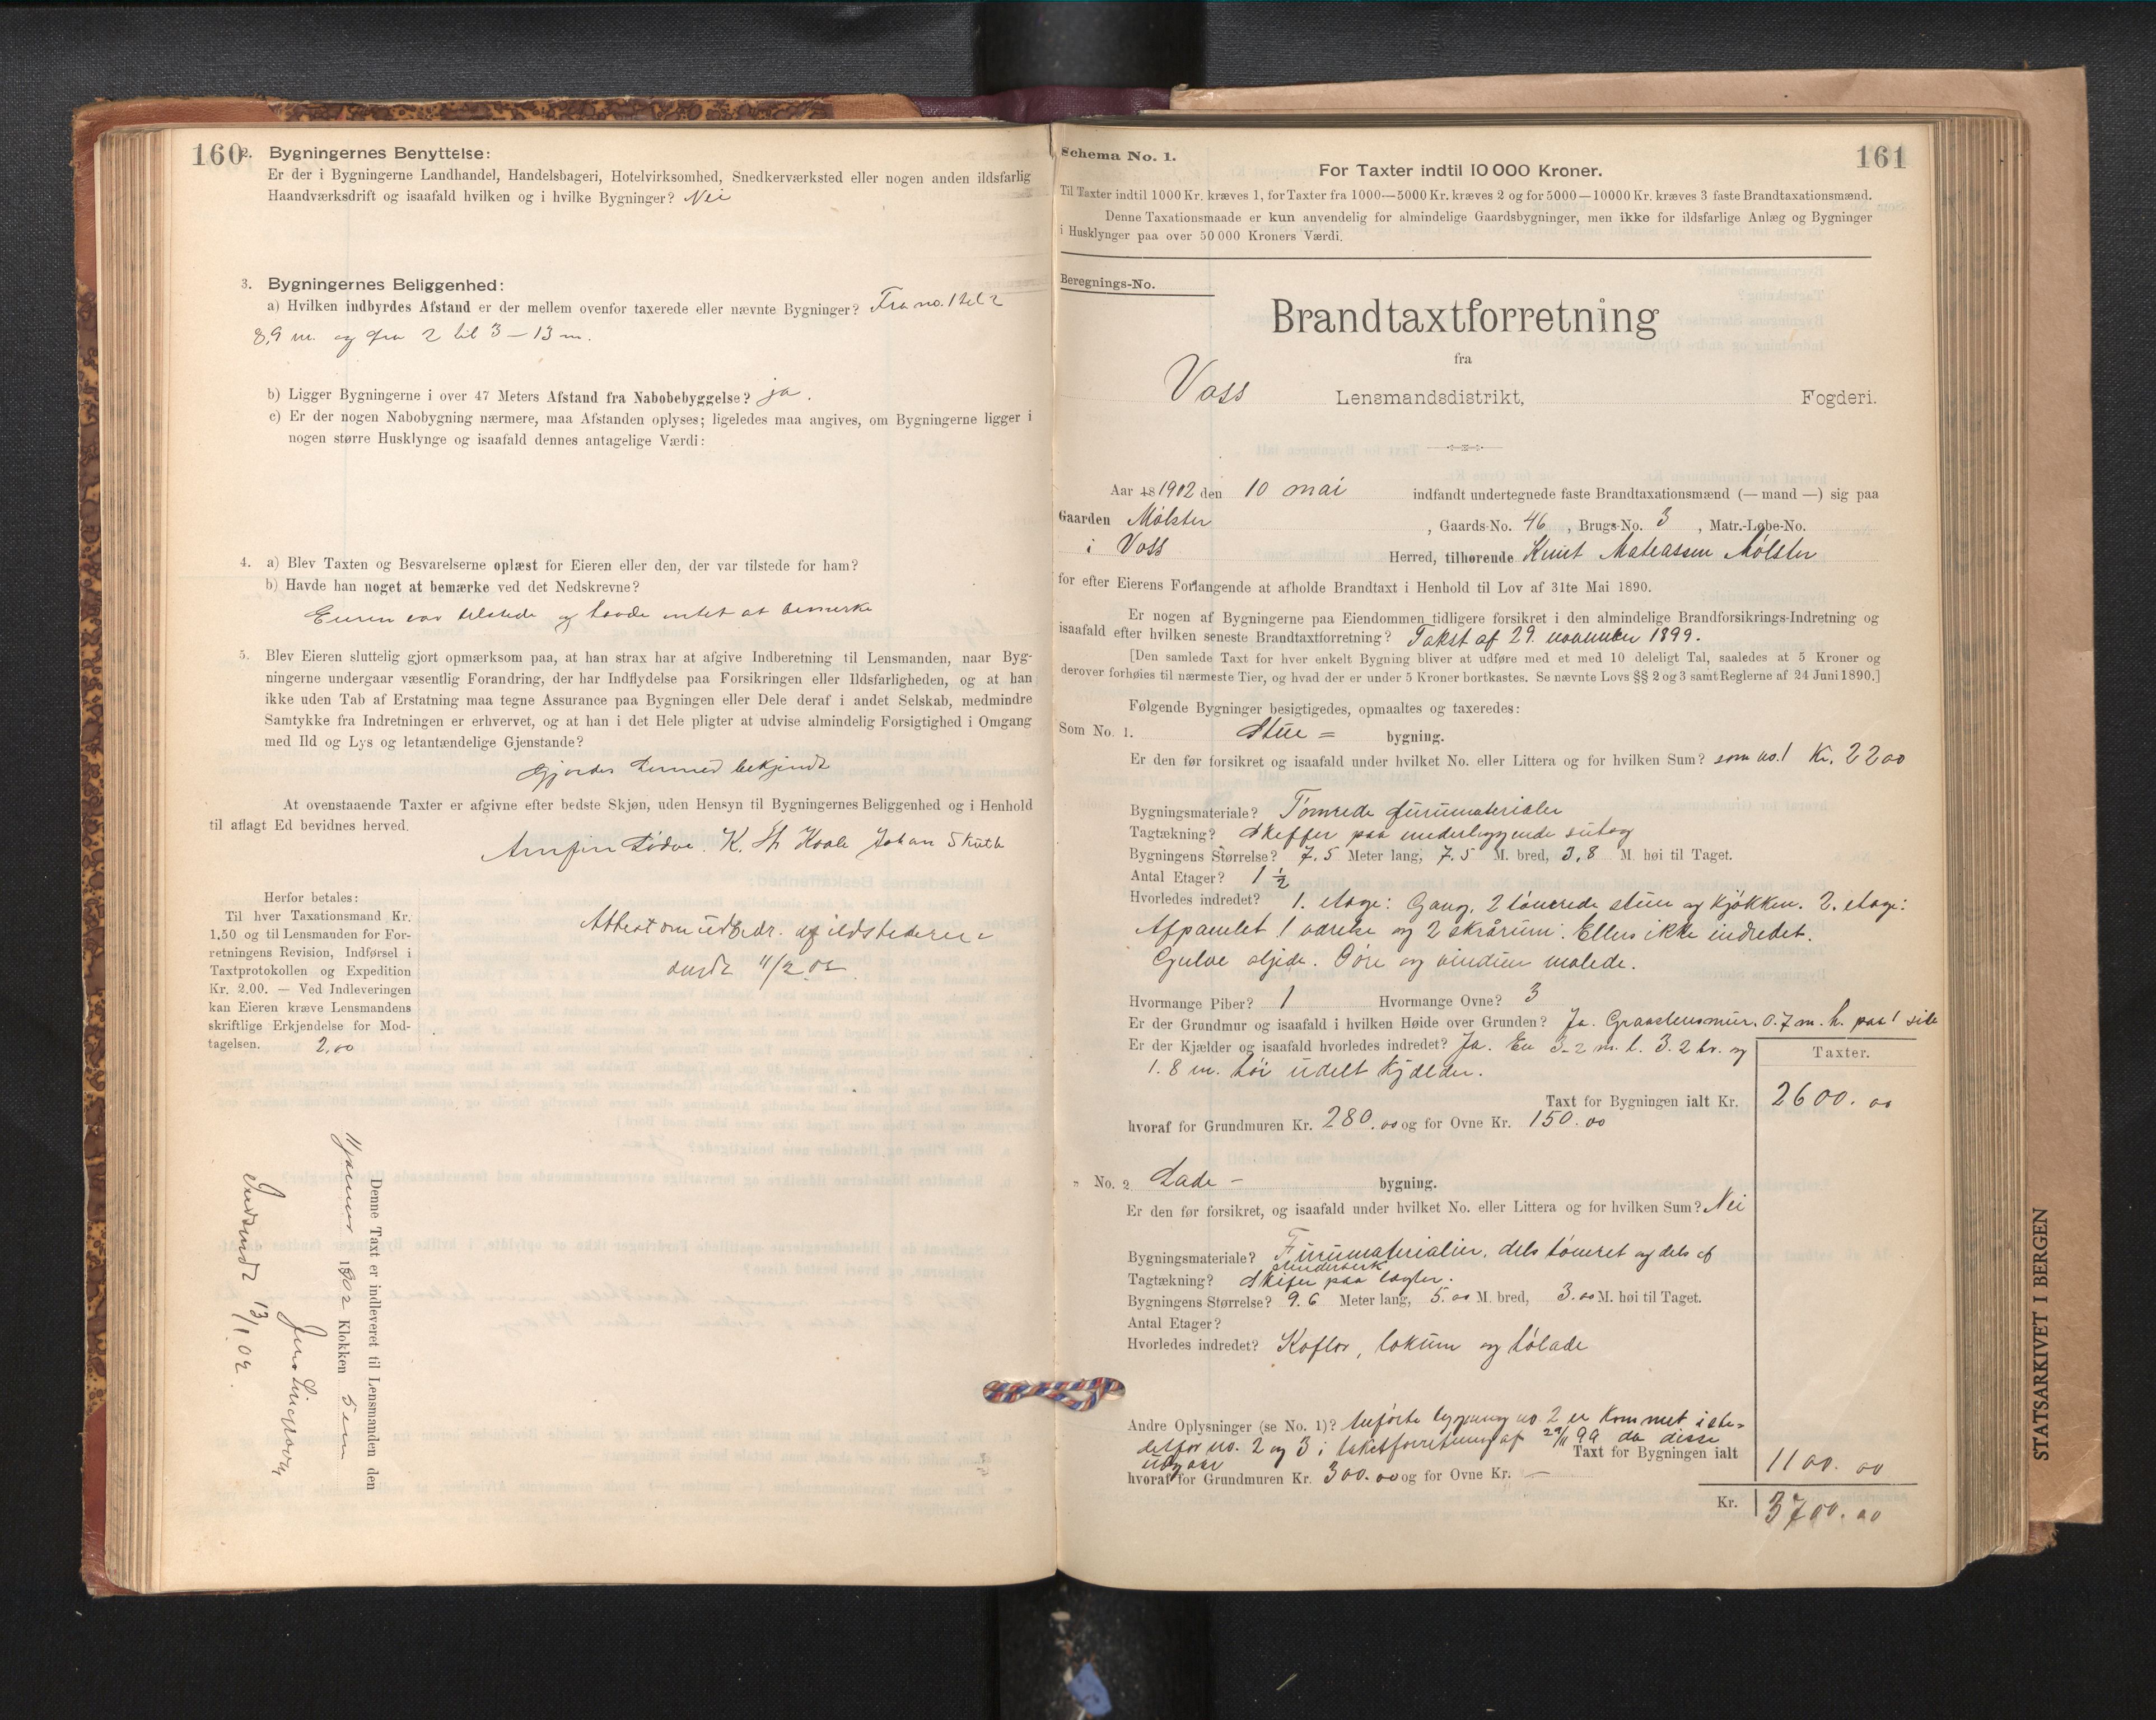 160
2. Bygningernes Benyttelse:
Er der i Bygningerne Landhandel, Handelsbageri, Hotelvirksomhed, Snedkerværksted eller nogen anden ildsfarlig
Haandværksdrift og isaafald hvilken og i hvilke Bygninger? Nei
3. Bygningernes Beliggenhed:
a) Hvilken indbyrdes Afstand er der mellem ovenfor taxerede eller nævnte Bygninger? Fra no. 1 til 2
8,9 m. og fra 2 til 3 – 13 m.
b) Ligger Bygningerne i over 47 Meters Afstand fra Nabobebyggelse? ja.
c) Er der nogen Nabobygning nærmere, maa Afstanden oplyses; ligeledes maa angives, om Bygningerne ligger i
nogen større Husklynge og isaafald dennes antagelige Værdi:
4. a) Blev Taxten og Besvarelserne oplæst for Eieren eller den, der var tilstede for ham?
b) Havde han noget at bemærke ved det Nedskrevne?
Eieren var tilstede og havde intet at bemærke
5. Blev Eieren sluttelig gjort opmærksom paa, at han strax har at afgive Indberetning til Lensmanden, naar Byg-
ningerne undergaar væsentlig Forandring, der har Indflydelse paa Forsikringen eller Ildsfarligheden, og at han
ikke uden Tab af Erstatning maa tegne Assurance paa Bygningen eller Dele deraf i andet Selskab, medmindre
Samtykke fra Indretningen er erhvervet, og at han i det Hele pligter at udvise almindelig Forsigtighed i Omgang
med Ild og Lys og letantændelige Gjenstande?
Gjordes hermed bekjendt
At ovenstaaende Taxter er afgivne efter bedste Skjøn, uden Hensyn til Bygningernes Beliggenhed og i Henhold
til aflagt Ed bevidnes herved.
Arnfin Lødve. K. Johan Skutle
Herfor betales:
Til hver Taxationsmand Kr.
1.50 og til Lensmanden for For-
retningens Revision, Indførsel i
Taxtprotokollen og Expedition
Kr. 2.00. — Ved Indleveringen
kan Eieren kræve Lensmandens
skriftlige Erkjendelse for Mod-
tagelsen. 2,00
Attest om udbedr. af ildstederne
11/2 02
Denne Taxt er indleveret til Lensmanden den
1902 Klokken 5 em
Indsendt 13/1 02.
161
Schema No. 1.
For Taxter indtil 10 000 Kroner.
Til Taxter indtil 1000 Kr. kræves 1, for Taxter fra 1000—5000 Kr. kræves 2 og for 5000—10000 Kr. kræves 3 faste Brandtaxationsmænd.
Denne Taxationsmaade er kun anvendelig for almindelige Gaardsbygninger, men ikke for ildsfarlige Anlæg og Bygninger
i Husklynger paa over 50 000 Kroners Værdi.
Beregnings-No.
Brandtaxtforretning
fra
Voss Lensmandsdistrikt, Fogderi.
Aar 18 1902 den 10 mai indfandt undertegnede faste Brandtaxationsmænd (— mand —) sig paa
Gaarden Mølster, Gaards-No. 46, Brugs-No. 3, Matr.-Løbe-No.
i Voss Herred, tilhørende Knut Mateassen Mølster
for efter Eierens Forlangende at afholde Brandtaxt i Henhold til Lov af 31te Mai 1890.
Er nogen af Bygningerne paa Eiendommen tidligere forsikret i den almindelige Brandforsikrings-Indretning og
isaafald efter hvilken seneste Brandtaxtforretning? Takst af 29. november 1899.
[Den samlede Taxt for hver enkelt Bygning bliver at udføre med et med 10 deleligt Tal, saaledes at 5 Kroner og
derover forhøies til nærmeste Tier, og hvad der er under 5 Kroner bortkastes. Se nævnte Lovs §§ 2 og 3 samt Reglerne af 24 Juni 1890.]
Følgende Bygninger besigtigedes, opmaaltes og taxeredes:
Som No. 1. Stue = bygning.
Er den før forsikret og isaafald under hvilket No. eller Littera og for hvilken Sum? som no. 1 Kr. 2200
Bygningsmateriale? Tømrede furumaterialer
Tagtækning? Skiffer paa underliggende sutag
Bygningens Størrelse? 7.5 Meter lang, 7.5 M. bred, 3,8 M. høi til Taget.
Antal Etager? 1 ½
Hvorledes indredet? 1. etage: Gang, 2 tømrede stuer og kjøkken. 2. etage:
Afpanelet 1 værelse og 2 skrårum. Ellers ikke indredet.
Gulve oljede. Døre og vinduer malede.
Hvormange Piber? 1 Hvormange Ovne? 3
Er der Grundmur og isaafald i hvilken Høide over Grunden? Ja. Graastensmur. 0.7 m. h. paa 1 side
Er der Kjælder og isaafald hvorledes indredet? Ja. En 3.2 m. l. 3.2 br. og
1.8 m. høi udelt kjælder.
Taxter.
Taxt for Bygningen ialt Kr. 2600.00
hvoraf for Grundmuren Kr. 280.00 og for Ovne Kr. 150.00
" No. 2 Lade – bygning.
Er den før forsikret, og isaafald under hvilket No. eller Littera og for hvilken Sum? Nei
Bygningsmateriale? Furumaterialier, dels tømret og dels af
stenderverk
Tagtækning? Skifer paa lægter.
Bygningens Størrelse? 9.6 Meter lang, 5.00 M. bred, 3.00 M. høi til Taget.
Antal Etager?
Hvorledes indredet? Koflor, lokum og hølade
Andre Oplysninger (se No. 1)? Anførte bygning no. 2 er kommet iste-
detfor no. 2 og 3 i takstforretning af 29/11 99 da disse
udgaar
Taxt for Bygningen ialt 1100.00
hvoraf for Grundmuren Kr. 300.00 og for Ovne Kr. —
Kr. 3700.00
STATSARKIVET I BERGEN